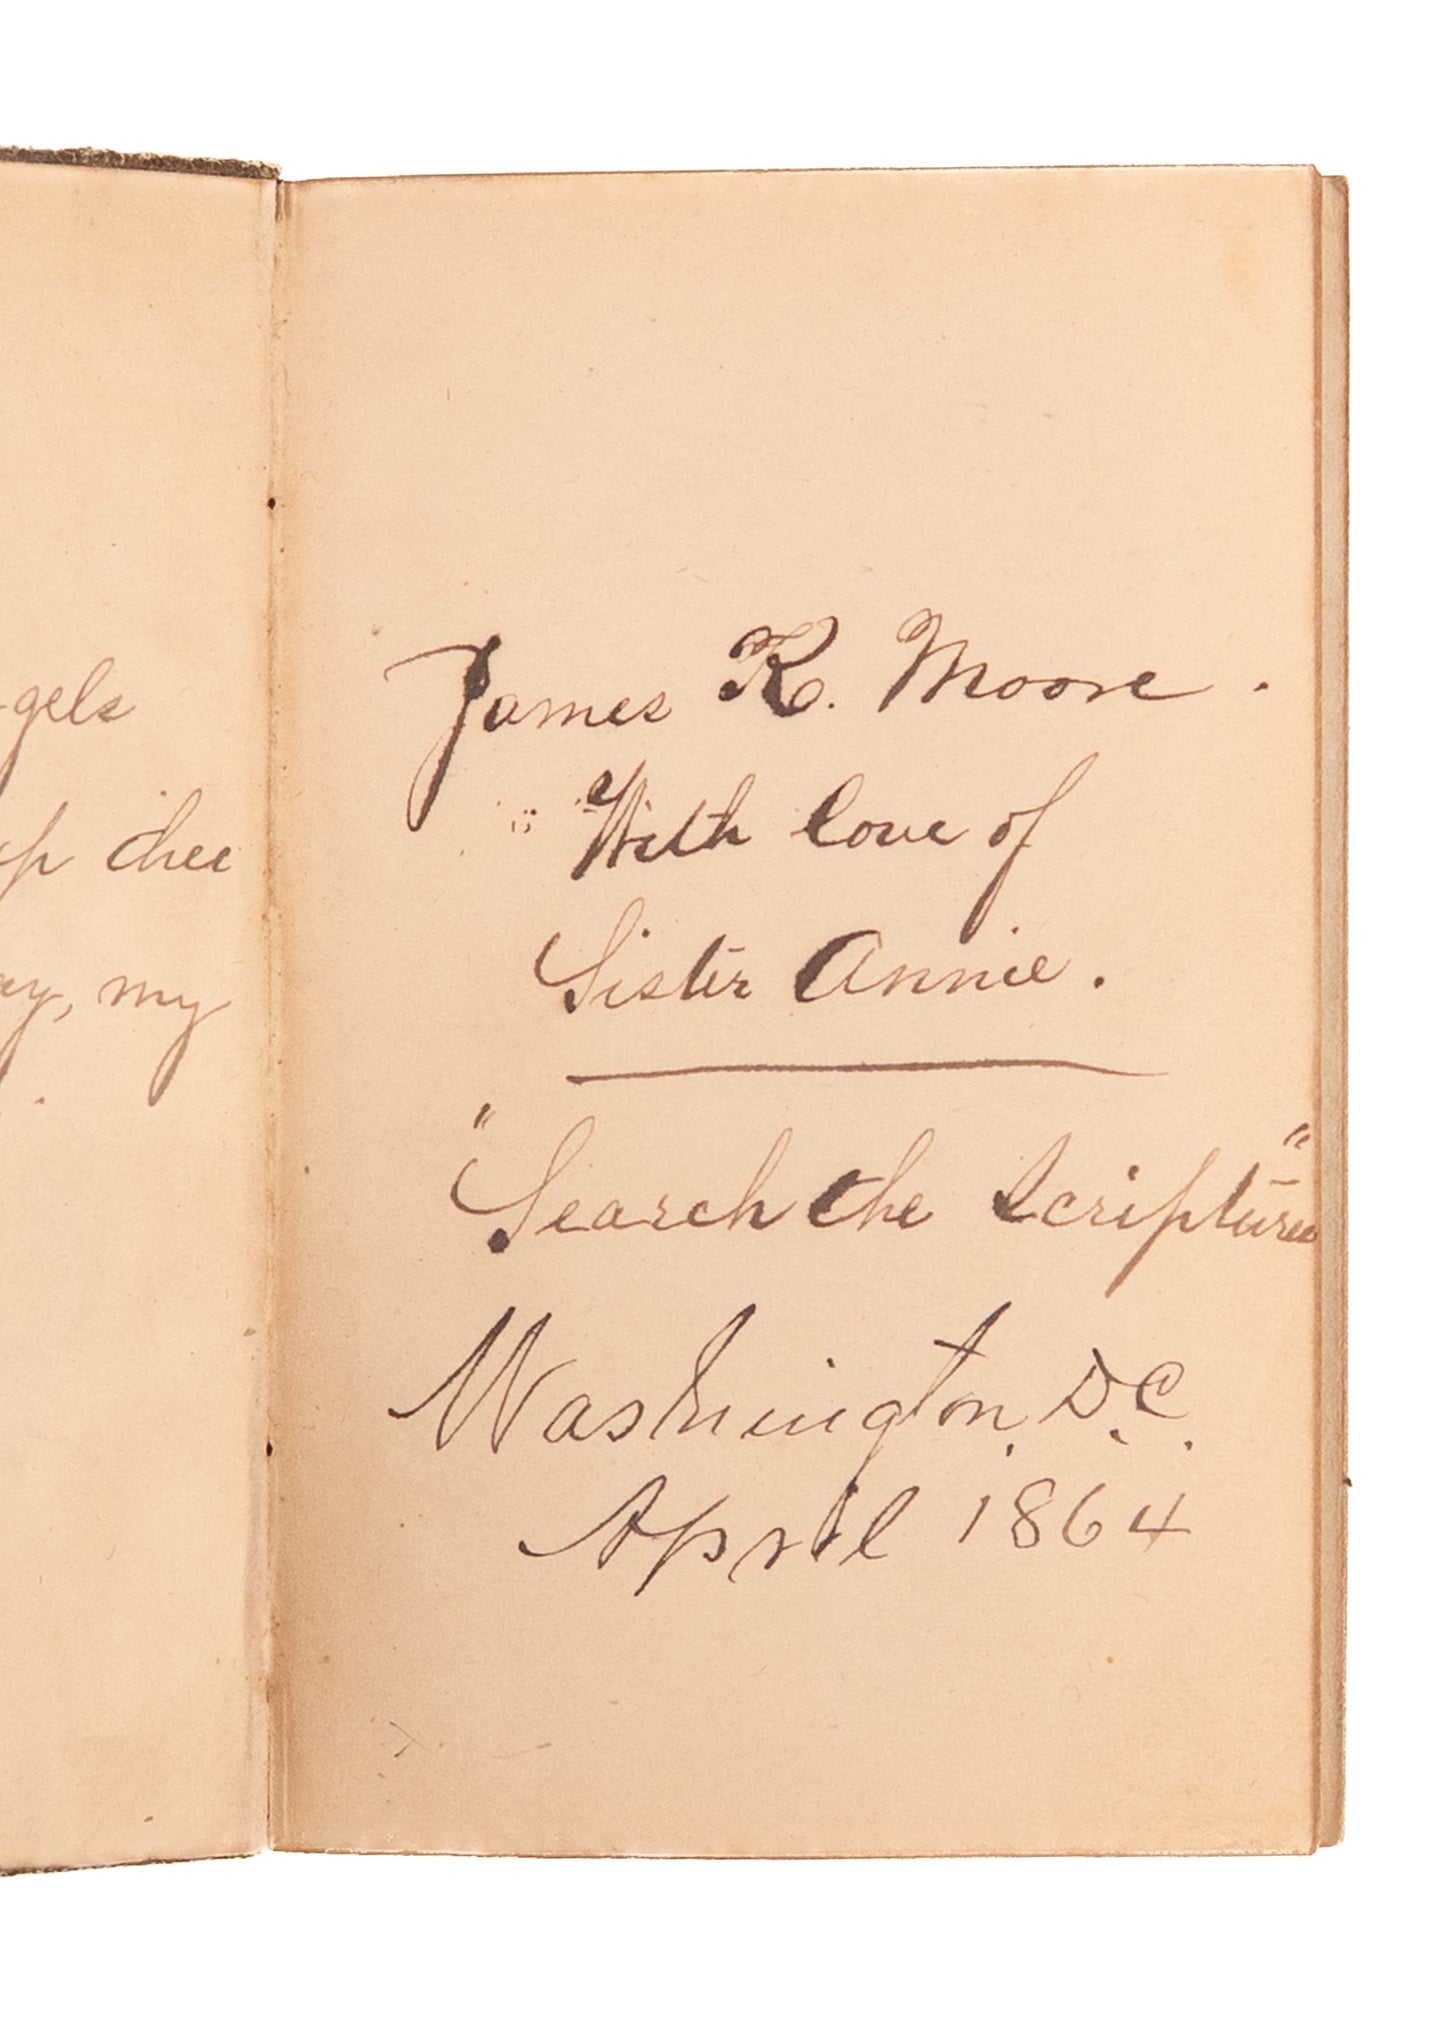 gels
thee
my
James K. Moore.
With love of
Sister Annie.
"Search the Scriptures"
Washington, D.C.
April 1864